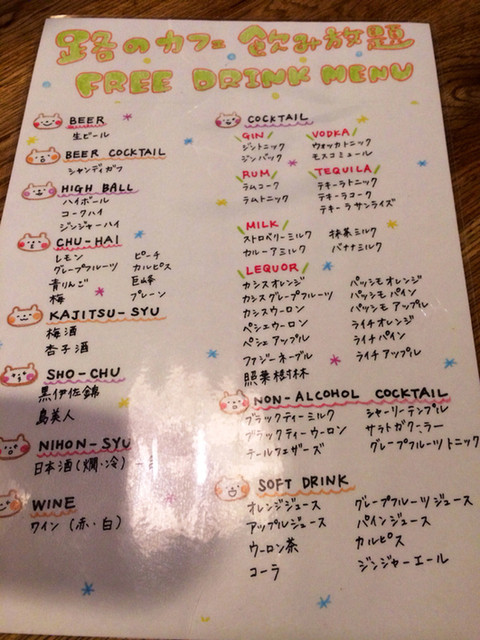 路のカフェ 飲み放題
FREE DRINK MENU
BEER
生ビール
BEER COCKTAIL
シャンディガフ
HIGH BALL
ハイボール
コークハイ
ジンジャーハイ
CHU-HAI
レモン ピーチ
グレープフルーツ カルピス
青りんご 巨峰
梅 プレーン
KAJITSU-SYU
梅酒
杏子酒
SHO-CHU
黒伊佐錦
島美人
NIHON-SYU
日本酒(燗・冷)
WINE
ワイン (赤・白)
COCKTAIL
GIN VODKA
ジントニック ウォッカトニック
ジンバック モスコミュール
RUM TEQUILA
ラムコーク テキーラトニック
ラムトニック テキーラコーク
テキーラサンライズ
MILK
ストロベリーミルク 抹茶ミルク
カルーアミルク バナナミルク
LEQUOR
カシスオレンジ パッシモオレンジ
カシスグレープフルーツ パッシモパイン
カシスウーロン パッシモアップル
ペシェウーロン ライチオレンジ
ペシェアップル ライチパイン
ファジーネーブル ライチアップル
照葉樹林
NON-ALCOHOL COCKTAIL
ブラックティーミルク シャーリーテンプル
ブラックティーウーロン サラトガクーラー
テールフェザーズ グレープフルーツトニック
SOFT DRINK
オレンジジュース グレープフルーツジュース
アップルジュース パインジュース
ウーロン茶 カルピス
コーラ ジンジャーエール